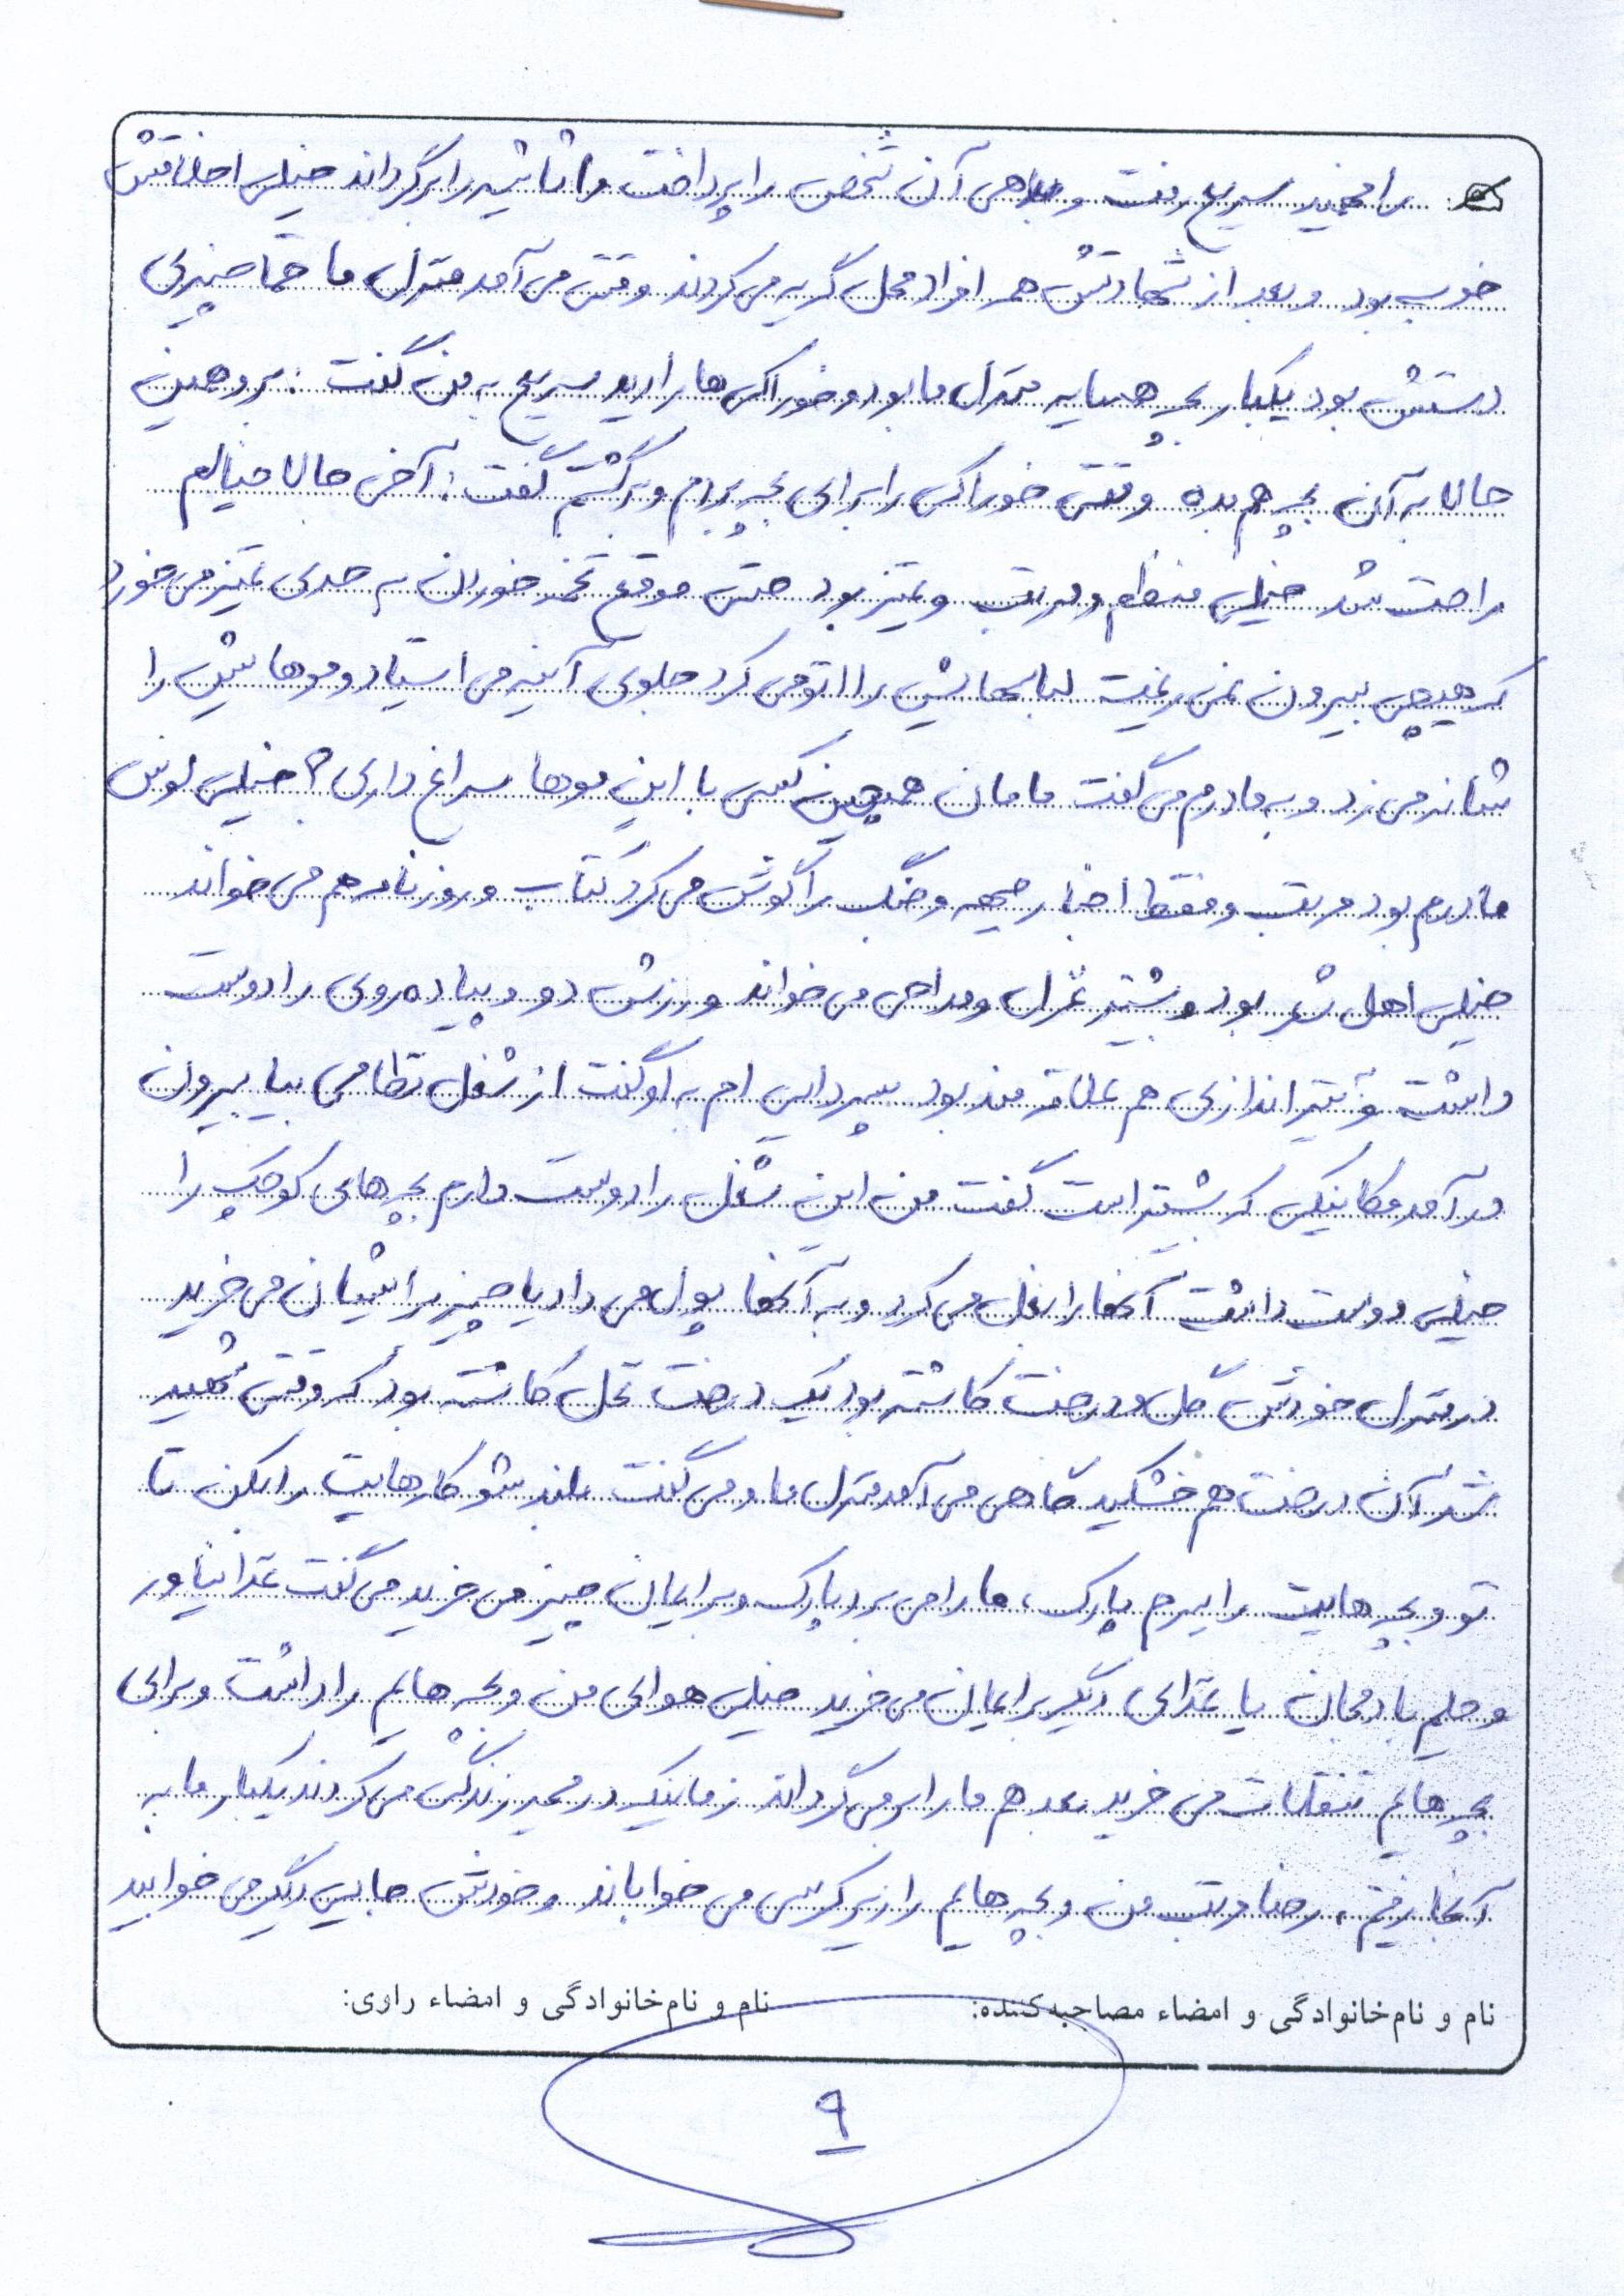 را فهمید سریع رفت و بدهی آن شخص را پرداخت و اثاثیه را برگرداند خیلی اخلاقش
خوب بود و بعد از شهادتش هم افراد محل گریه می کردند وقتی می آمد منزل ما حتما چیزی
دستش بود یکبار بچه همسایه منزل ما بود و خوراکی ها را دید سریع به من گفت : برو همین
حالا به آن بچه هم بده وقتی خوراکی را برای بچه بردم و برگشتم گفت : آخی حالا خیالم
راحت شد خیلی منظم و مرتب و تمیز بود حتی موقع تخمه خوردن به حدی تمیز می خورد
که هیچی بیرون نمی ریخت لباسهایش را اتو می کرد جلوی آینه می ایستاد و موهایش را
شانه می زد و به مادرم می گفت مامان همچین کسی با این موها سراغ داری ؟ خیلی لوس
مادرم بود مرتب و فقط اخبار جبهه و جنگ را گوش می کرد کتاب و روزنامه هم می خواند
خیلی اهل شعر بود و بیشتر غزل و مداحی می خواند ورزش دو و پیاده روی را دوست
داشت و تیراندازی هم علاقه مند بود پسر دایی ام به او گفت از شغل نظامی بیا بیرون
درآمد مکانیکی که بیشتر است گفت من این شغل را دوست دارم بچه های کوچک را
خیلی دوست داشت آنها را بغل می کرد و به آنها پول می داد یا چیز براشان می خرید
در منزل خودش گل و درخت کاشته بود یک درخت نخل کاشته بود که وقتی شهید
شد آن درخت هم خشکید گاهی می آمد منزل ما و می گفت بلند شو کارهایت را بکن تا
تو و بچه هایت را ببرم پارک ، ما را می برد پارک و برایمان چیز می خرید می گفت غذا نیاور
و حلیم بادمجان یا غذای دیگر برایمان می خرید خیلی هوای من و بچه هایم را داشت و برای
بچه هایم تنقلات می خرید بعد هم ما را برمی گرداند زمانیکه در زندگی می کردند یکبار ما به
آنجا رفتیم ، رضا مرتب من و بچه هایم را زیر کرسی می خواباند و خودش جایی دیگر می خوابید
نام و نام‌خانوادگی و امضاء مصاحبه‌کننده: نام و نام‌خانوادگی و امضاء راوی:
۹